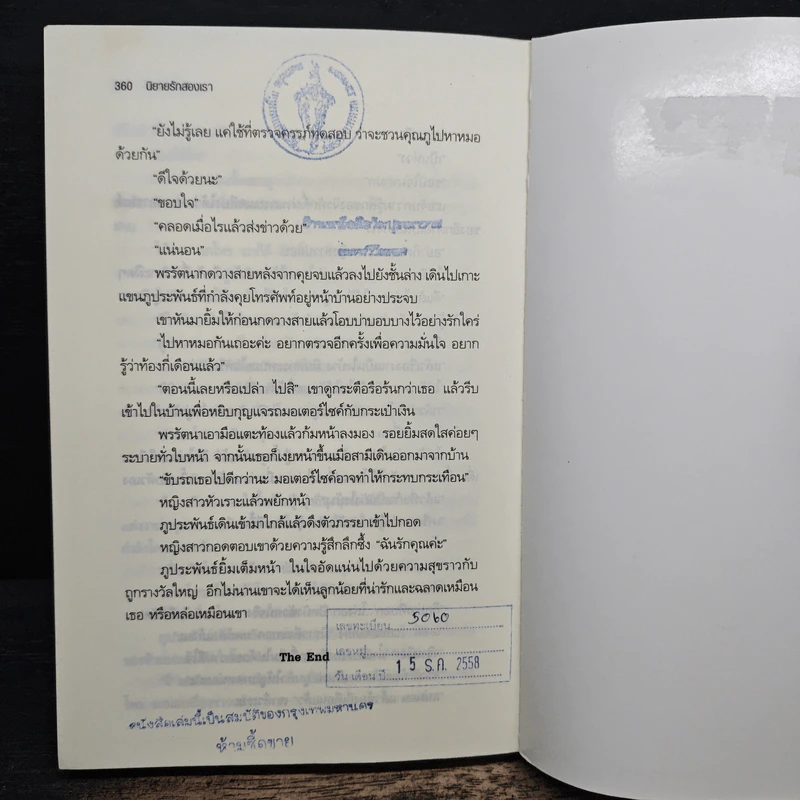 360 นิยายรักสองเรา
"ยังไม่รู้เลย แค่ใช้ที่ตรวจครรภ์ทดสอบ ว่าจะชวนคุณภูไปหาหมอ
ด้วยกัน"
"ดีใจด้วยนะ"
"ขอบใจ"
"คลอดเมื่อไรแล้วส่งข่าวด้วย"
"แน่นอน"
พรรัตนากดวางสายหลังจากคุยจบแล้วลงไปยังชั้นล่าง เดินไปเกาะ
แขนภูประพันธ์ที่กำลังคุยโทรศัพท์อยู่หน้าบ้านอย่างประจบ
เขาหันมายิ้มให้ก่อนกดวางสายแล้วโอบบ่าบอบบางไว้อย่างรักใคร่
"ไปหาหมอกันเถอะค่ะ อยากตรวจอีกครั้งเพื่อความมั่นใจ อยาก
รู้ว่าท้องกี่เดือนแล้ว"
"ตอนนี้เลยหรือเปล่า ไปสิ" เขาดูกระตือรือร้นกว่าเธอ แล้วรีบ
เข้าไปในบ้านเพื่อหยิบกุญแจรถมอเตอร์ไซค์กับกระเป๋าเงิน
พรรัตนาเอามือแตะท้องแล้วก้มหน้าลงมอง รอยยิ้มสดใสค่อยๆ
ระบายทั่วใบหน้า จากนั้นเธอก็เงยหน้าขึ้นเมื่อสามีเดินออกมาจากบ้าน
"ขับรถเธอไปดีกว่านะ มอเตอร์ไซค์อาจทำให้กระทบกระเทือน"
หญิงสาวหัวเราะแล้วพยักหน้า
ภูประพันธ์เดินเข้ามาใกล้แล้วดึงตัวภรรยาเข้าไปกอด
หญิงสาวกอดตอบเขาด้วยความรู้สึกลึกซึ้ง "ฉันรักคุณค่ะ"
ภูประพันธ์ยิ้มเต็มหน้า ในใจอัดแน่นไปด้วยความสุขราวกับ
ถูกรางวัลใหญ่ อีกไม่นานเขาจะได้เห็นลูกน้อยที่น่ารักและฉลาดเหมือน
เธอ หรือหล่อเหมือนเขา
The End
เลขทะเบียน 5060
เลขหมู่
วัน เดือน ปี 15 ธ.ค. 2558
หนังสือเล่มนี้เป็นสมบัติของกรุงเทพมหานคร
ห้ามซื้อขาย